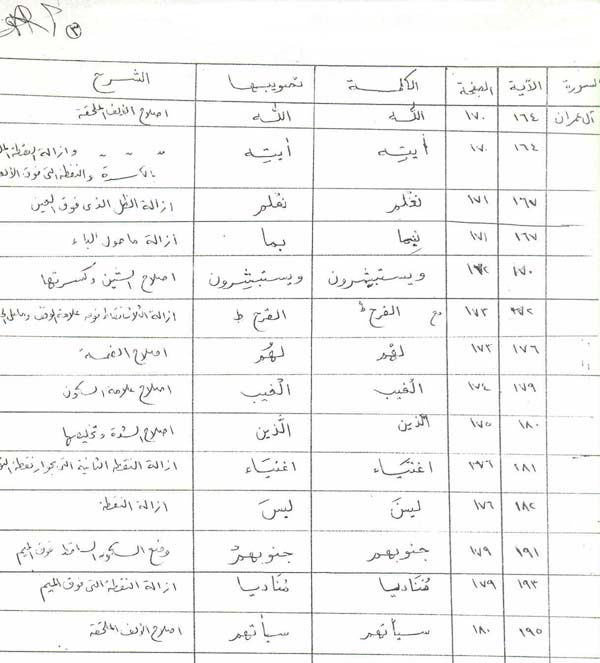 ٣
السورة الآية الصفحة الكلمة تصويبها الشرح
آل عمران ١٦٤ ١٧٠ الله الله اصلاح الألف الملحقة
١٦٤ ١٧٠ أيته أيته وازالة النقطة
بالكسرة والنقطة التى فوق
١٦٧ ١٧١ نعْلم نعْلم ازالة الظل الذى فوق العين
١٦٧ ١٧١ بما بما ازالة ما حول الباء
١٧٠ ١٧٢ ويستبشِرون ويستبشِرون اصلاح الشين وكسرتها
١٧٢ ١٧٣ القرح ط القرح ط ازالة الثلاث نقط فوقه علامة الوقف
١٧٦ ١٧٣ لهُم لهُم اصلاح الضمة
١٧٩ ١٧٤ الْغيب الْغيب اصلاح علامة السكون
١٨٠ ١٧٥ الّذين الّذين اصلاح الشدة
١٨١ ١٧٦ اغنيَاء اغنيَاء ازالة النقطة الثانية التى بجوار نقطة
١٨٢ ١٧٦ ليسَ ليسَ ازالة النقطة
١٩١ ١٧٩ جنوبهم جنوبهمْ وضع السكون الساقط فوق الميم
١٩٣ ١٧٩ مُناديا مُناديا ازالة النقطة التى فوق الميم
١٩٥ ١٨٠ سيأتهم سيأتهم اصلاح الألف الملحقة